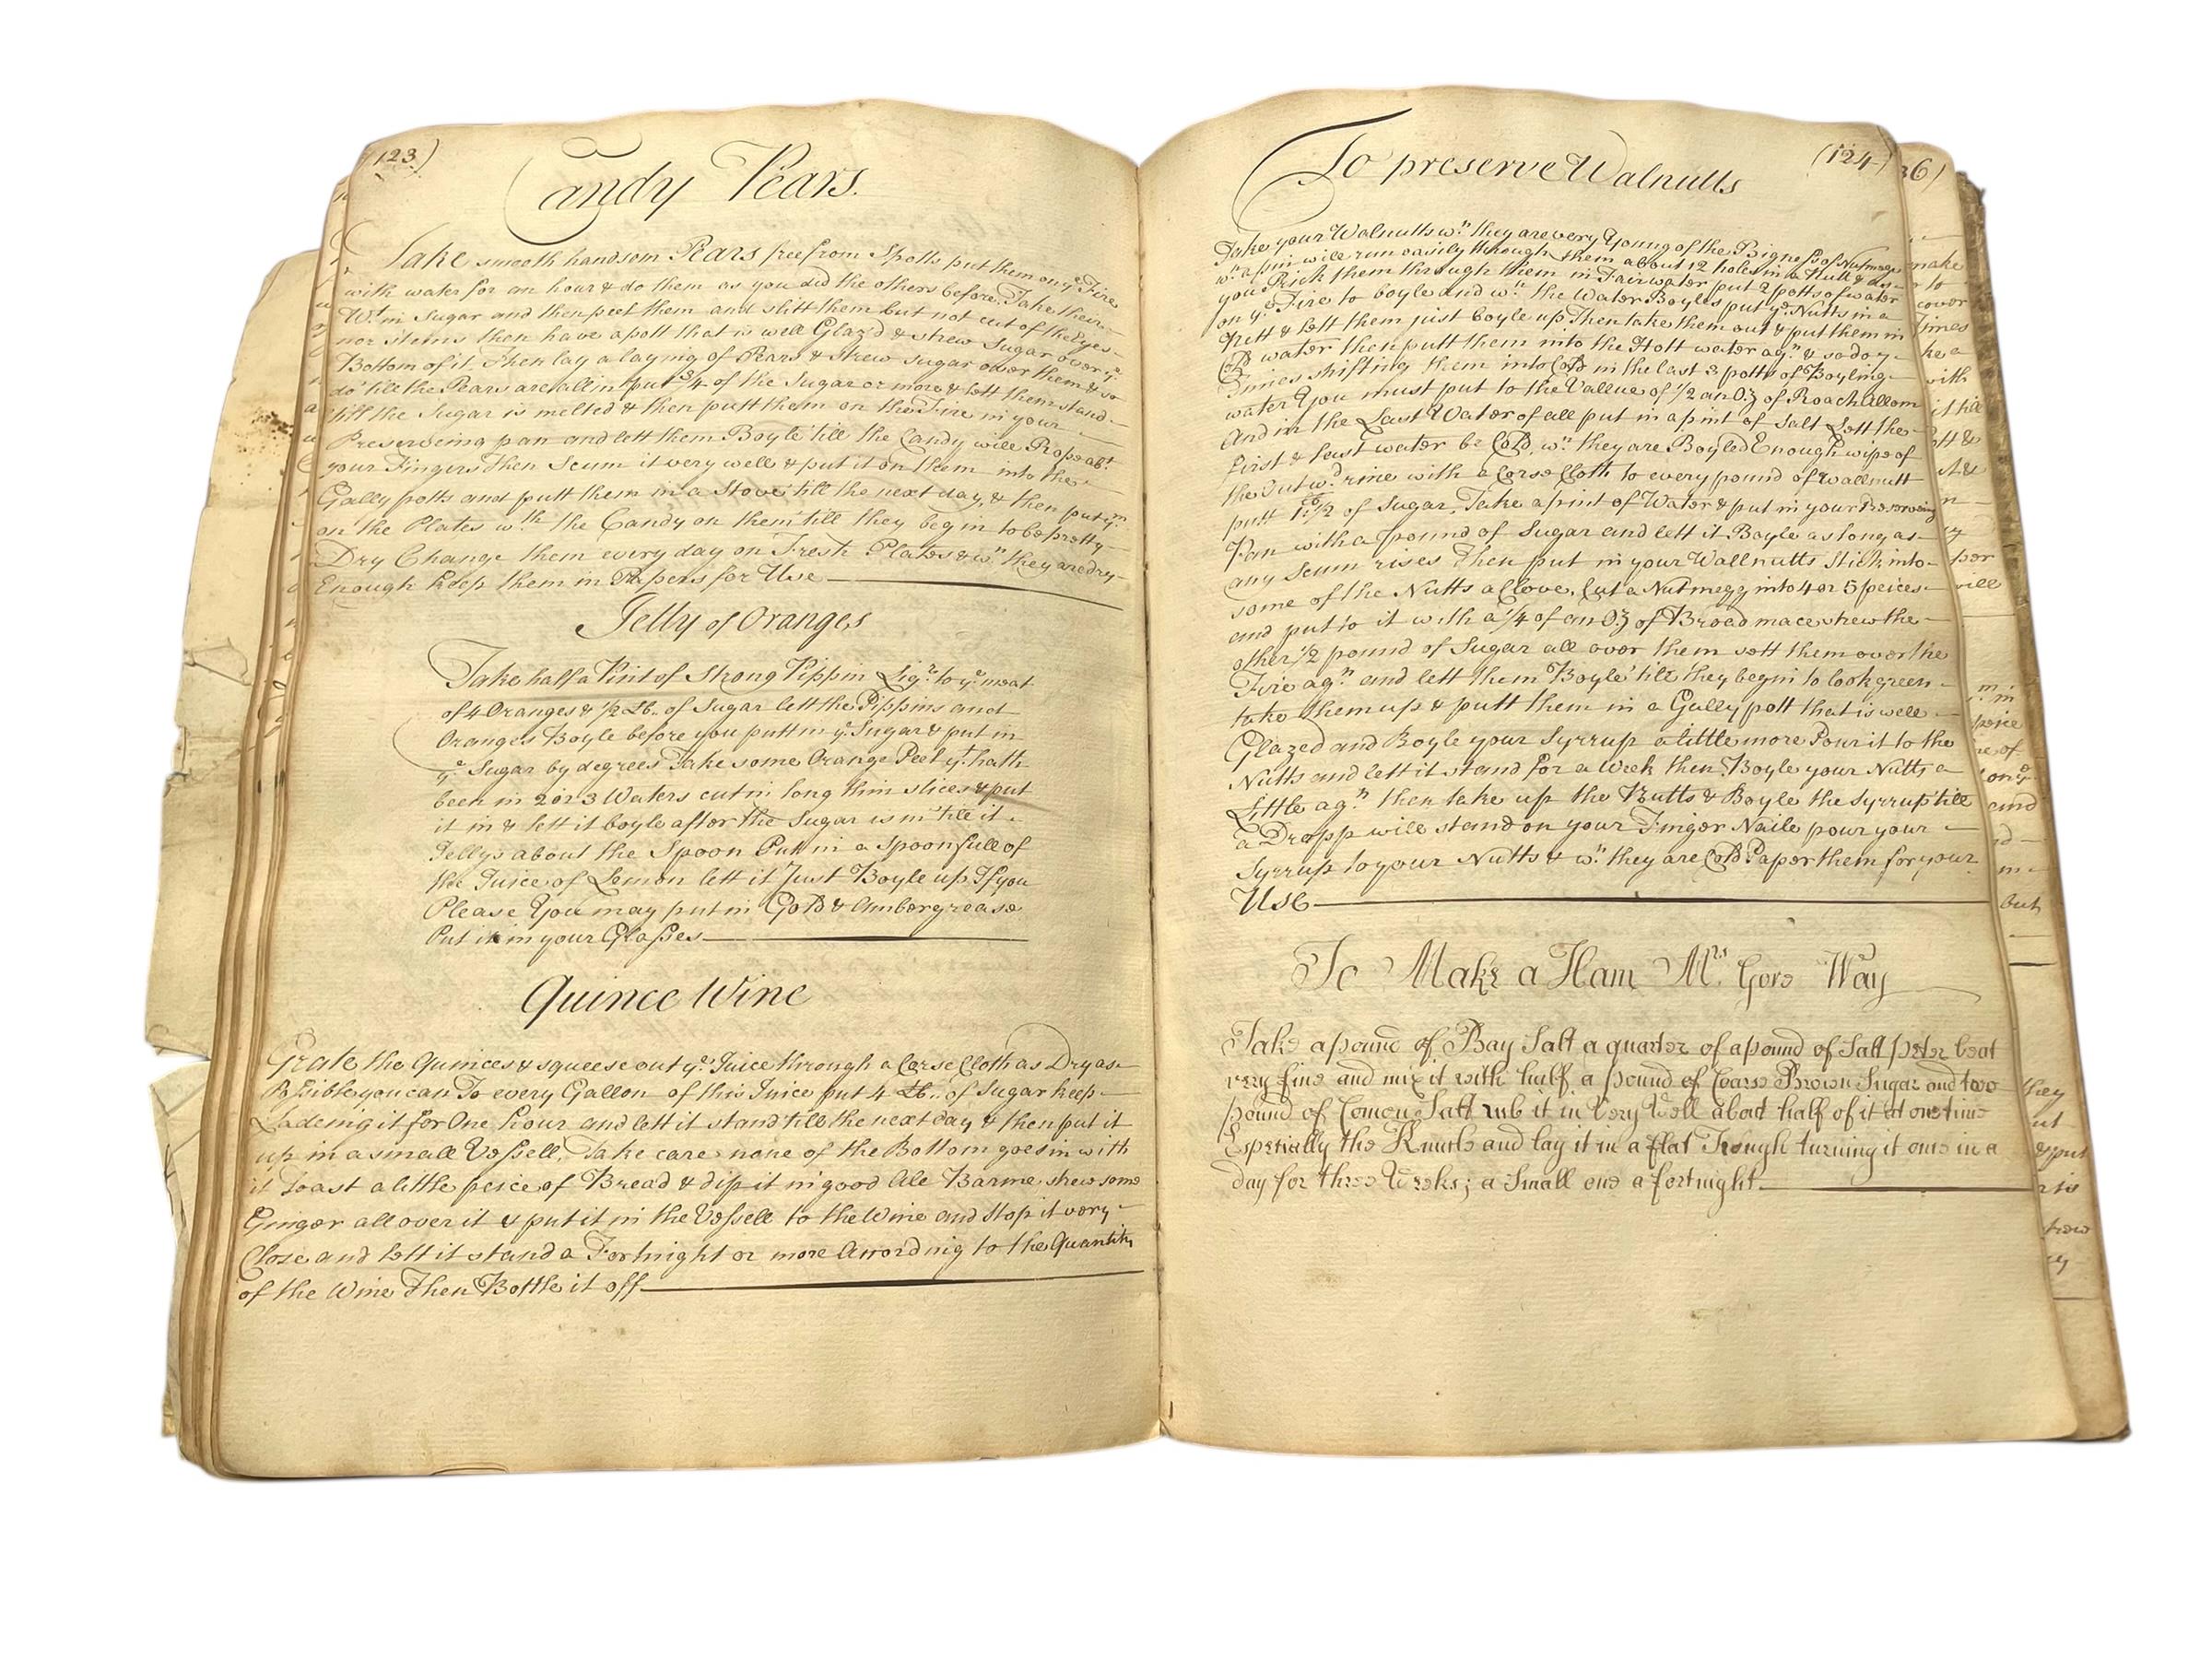 (123.)
Candy Pears.
Take smooth handsom Pears free from Spotts put them on yᵉ Fire
with water for an hour & do them as you did the others before, Take their
Wᵗ in Sugar and then peel them and slitt them but not cut of the Eyes
nor stems then have a pott that is well Glaz'd & strew Sugar over yᵉ
Bottom of it. Then lay a laying of Pears & strew Sugar over them & so
do till the Pears are all in put ¾ of the Sugar or more & lett them stand
till the Sugar is melted & then putt them on the Fire in your
Preserveing pan and lett them Boyle till the Candy will Rope abᵗ
your Fingers Then Scum it very well & put it on them into the
Gally potts and putt them in a Stove till the next day, & then put yᵐ
on the Plates wᵗʰ the Candy on them till they begin to be pretty
Dry Change them every day on Fresh Plates & wⁿ they are dry
Enough keep them in Papers for Use
Jelly of Oranges
Take half a Pint of Strong Pippin Liqʳ to yᵉ meat
of 4 Oranges & ½ lb. of Sugar lett the Pippins and
Oranges Boyle before you putt in yᵉ Sugar & put in
yᵉ Sugar by degrees Take some Orange Peel yᵗ hath
been in 2 or 3 Waters cut in long thin slices & put
it in & lett it boyle after the Sugar is in till it
Jellys about the Spoon Put in a Spoonfull of
the Juice of Lemon lett it Just Boyle up If you
Please You may put in Gold & Ambergrease
Put it in your Glasses
Quince Wine
Grate the Quinces & squeese out yᵉ Juice through a Corse Cloth as Dry as
Possible you can To every Gallon of this Juice put 4 lb. of Sugar keep
Ladeing it for One Hour and lett it stand till the next day & then put it
up in a small Vessell, Take care none of the Bottom goes in with
it Toast a little peice of Bread & dip it in good Ale Barme strew some
Ginger all over it & put it in the Vessell to the Wine and Stop it very
Close and lett it stand a Fortnight or more According to the Quantity
of the Wine Then Bottle it off
(124)
To preserve Walnutts
Take your Walnutts wⁿ they are very Young of the Bigness of Nutmegs
wⁿ a pin will run easily through them about 12 holes in a Nutt & as
you Prick them through them in Fair water put 2 potts of water
on yᵉ Fire to boyle and wⁿ the Water Boyles put yᵉ Nutts in a
Nett & lett them just boyle up Then take them out & put them in
Cold water then putt them into the Hott water agⁿ & so do 7
Times shifting them into Cold in the last 3 potts of Boyling
water You must put to the Vallue of ½ an Oz of Roach Allom
And in the Last Water of all put in a pint of Salt Lett the
First & last water be Cold, wⁿ they are Boyled Enough wipe of
the Outwᵈ rine with a Corse Cloth to every pound of wallnutt
putt 1 lb ½ of Sugar, Take a pint of Water & put in your Preserveing
Pan with a pound of Sugar and lett it Boyle as long as
any Scum rises Then put in your Wallnutts Stick into
some of the Nutts a Clove, Cut a Nutmegg into 4 or 5 peices
and put to it with a ¼ of an Oz of Broad mace strew the
other ½ pound of Sugar all over them sett them over the
Fire agⁿ and lett them Boyle till they begin to look green
take them up & putt them in a Gally pott that is well
Glazed and Boyle your Syrrup a little more Pour it to the
Nutts and lett it stand for a Week then Boyle your Nutts a
Little agⁿ then take up the Nutts & Boyle the Syrrup till
a Dropp will stand on your Finger Naile pour your
Syrrup to your Nutts & wⁿ they are Cold Paper them for your
Use
To Make a Ham Mʳˢ Gors Way
Take a pound of Bay Salt a quarter of a pound of Salt peter beat
very fine and mix it with half a pound of Coarse Brown Sugar and two
pound of Comon Salt rub it in Very Well about half of it at one time
Espetially the Knucle and lay it in a flat Trough turning it once in a
day for three Weeks; a Small one a fortnight